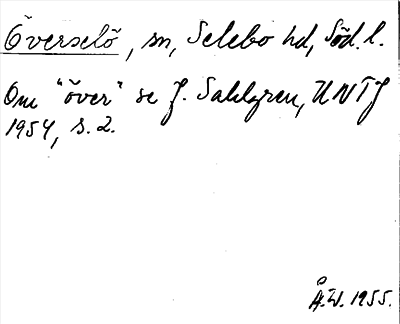 Överselö, sn, Selebo hd, Söd. l.
Om "över" se J. Sahlgren, UNTJ
1954, s. 2.
Å.W. 1955.